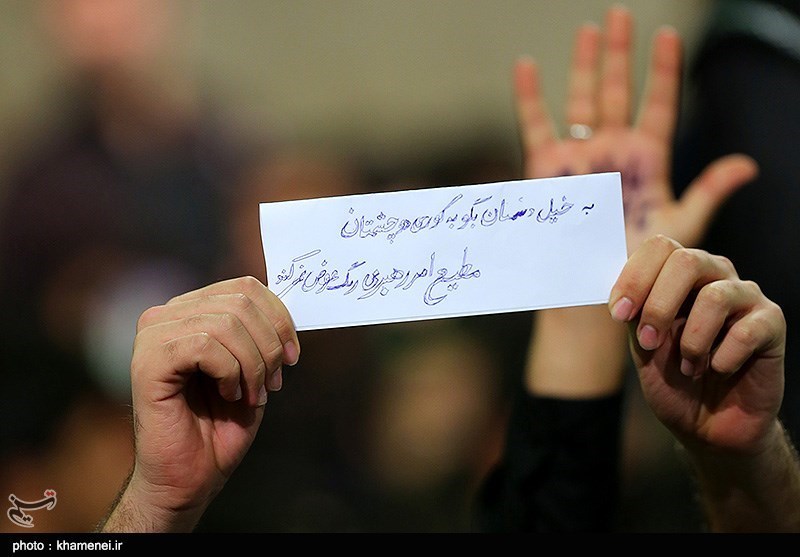 به خیل دشمنان بگو به کوری دو چشمتان
مطیع امر رهبری رنگ عوض نمی‌کند
تسنیم
photo : khamenei.ir